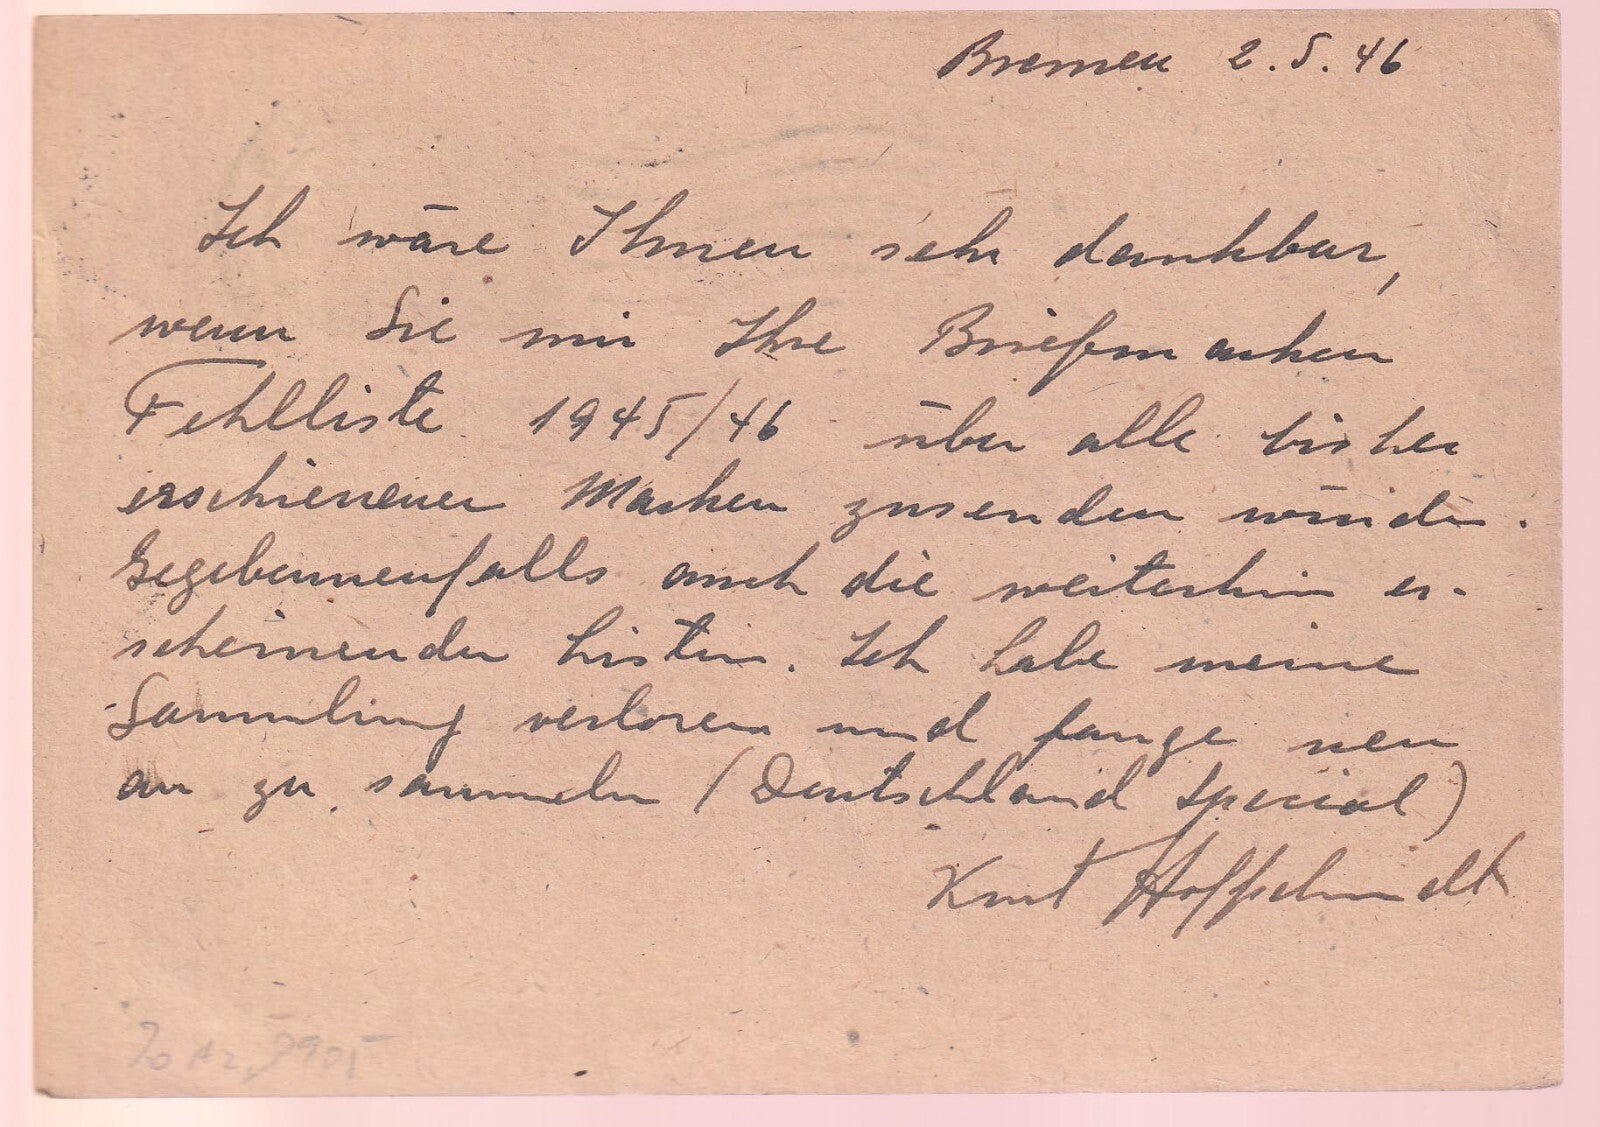 Bremen 2.5.46
Ich wäre Ihnen sehr dankbar,
wenn Sie mir Ihre Briefmarken
Fehlliste 1945/46 über alle bisher
erschienenen Marken zusenden würden.
Gegebenenfalls auch die weiterhin er-
scheinenden Listen. Ich habe meine
Sammlung verloren und fange neu
an zu sammeln (Deutschland Special)
Kurt Hoffschmidt